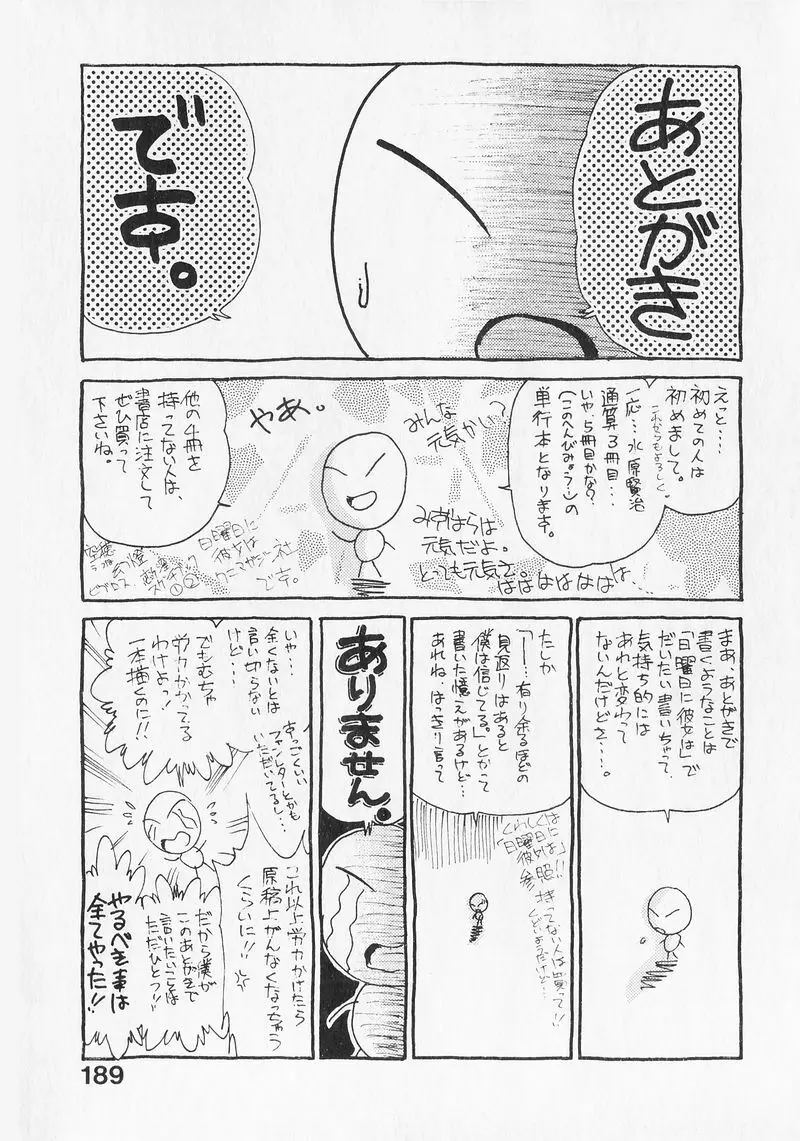 あとがき
です。
えっと…
初めての人は
初めまして。
これからもよろしく。
一応…水原賢治
通算3冊目…
いや、5冊目かな?
(このへんびみょう…)の
単行本となります。
みんな
元気かい?
やあ。
みずはらは
元気だよ。
とっても元気さ。
ははははははは…
他の4冊を
持ってない人は、
書店に注文して
ぜひ買って
下さいね。
日曜日に
彼女は
ワニマガジン社
です。
まあ、あとがきで
書くようなことは
「日曜日に彼女は」で
だいたい書いちゃって、
気持ち的には
あれと変わって
ないんだけどさ…。
たしか
「―!…有り余るほどの
見返りはあると
僕は信じてる。」とかって
書いた憶えがあるけど…
あれね、はっきり言って
くわしくは
「日曜日に
彼女は」
参照!!
持ってない人は買って!!
くどいようだけど…
ありません。
いや…
全くないとは
言い切らない
けど…
すっごくいい
ファンレターとかも
いただいてるし…
でもむちゃ
労力かかってる
わけよっ!
一本描くのに!!
これ以上労力かけたら
原稿上がんなくなっちゃう
くらいに!!
だから僕が
このあとがきで
言いたいことは
ただひとつ!!
やるべき事は
全てやった!!
189